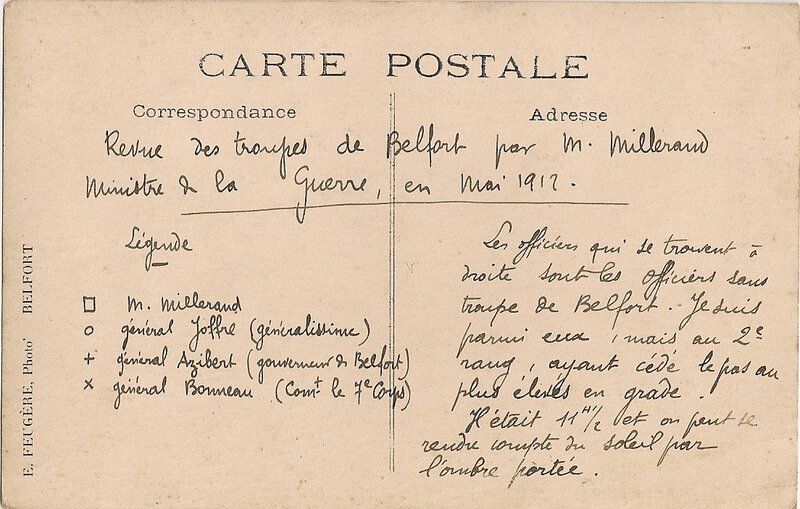 CARTE POSTALE
Correspondance
Adresse
Revue des troupes de Belfort par M. Millerand
Ministre de la Guerre, en Mai 1912.
Légende
□ M. Millerand
o général Joffre (généralissime)
+ général Azibert (gouverneur de Belfort)
x général Bonneau (Comt le 7e Corps)
Les officiers qui se trouvent à
droite sont les officiers sans
troupe de Belfort. Je suis
parmi eux, mais au 2e
rang, ayant cédé le pas au
plus élevés en grade.
Il était 11 H 1/2 et on peut se
rendre compte du soleil par
l'ombre portée.
E. FEUGÈRE, Photo' BELFORT